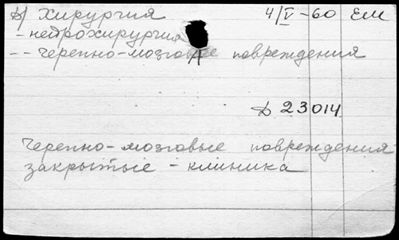 в) Хирургия 4/V-60 ЕМ
- нейрохирургия
-- черепно-мозговые повреждения
Д 23014
Черепно-мозговые повреждения
закрытые - клиника